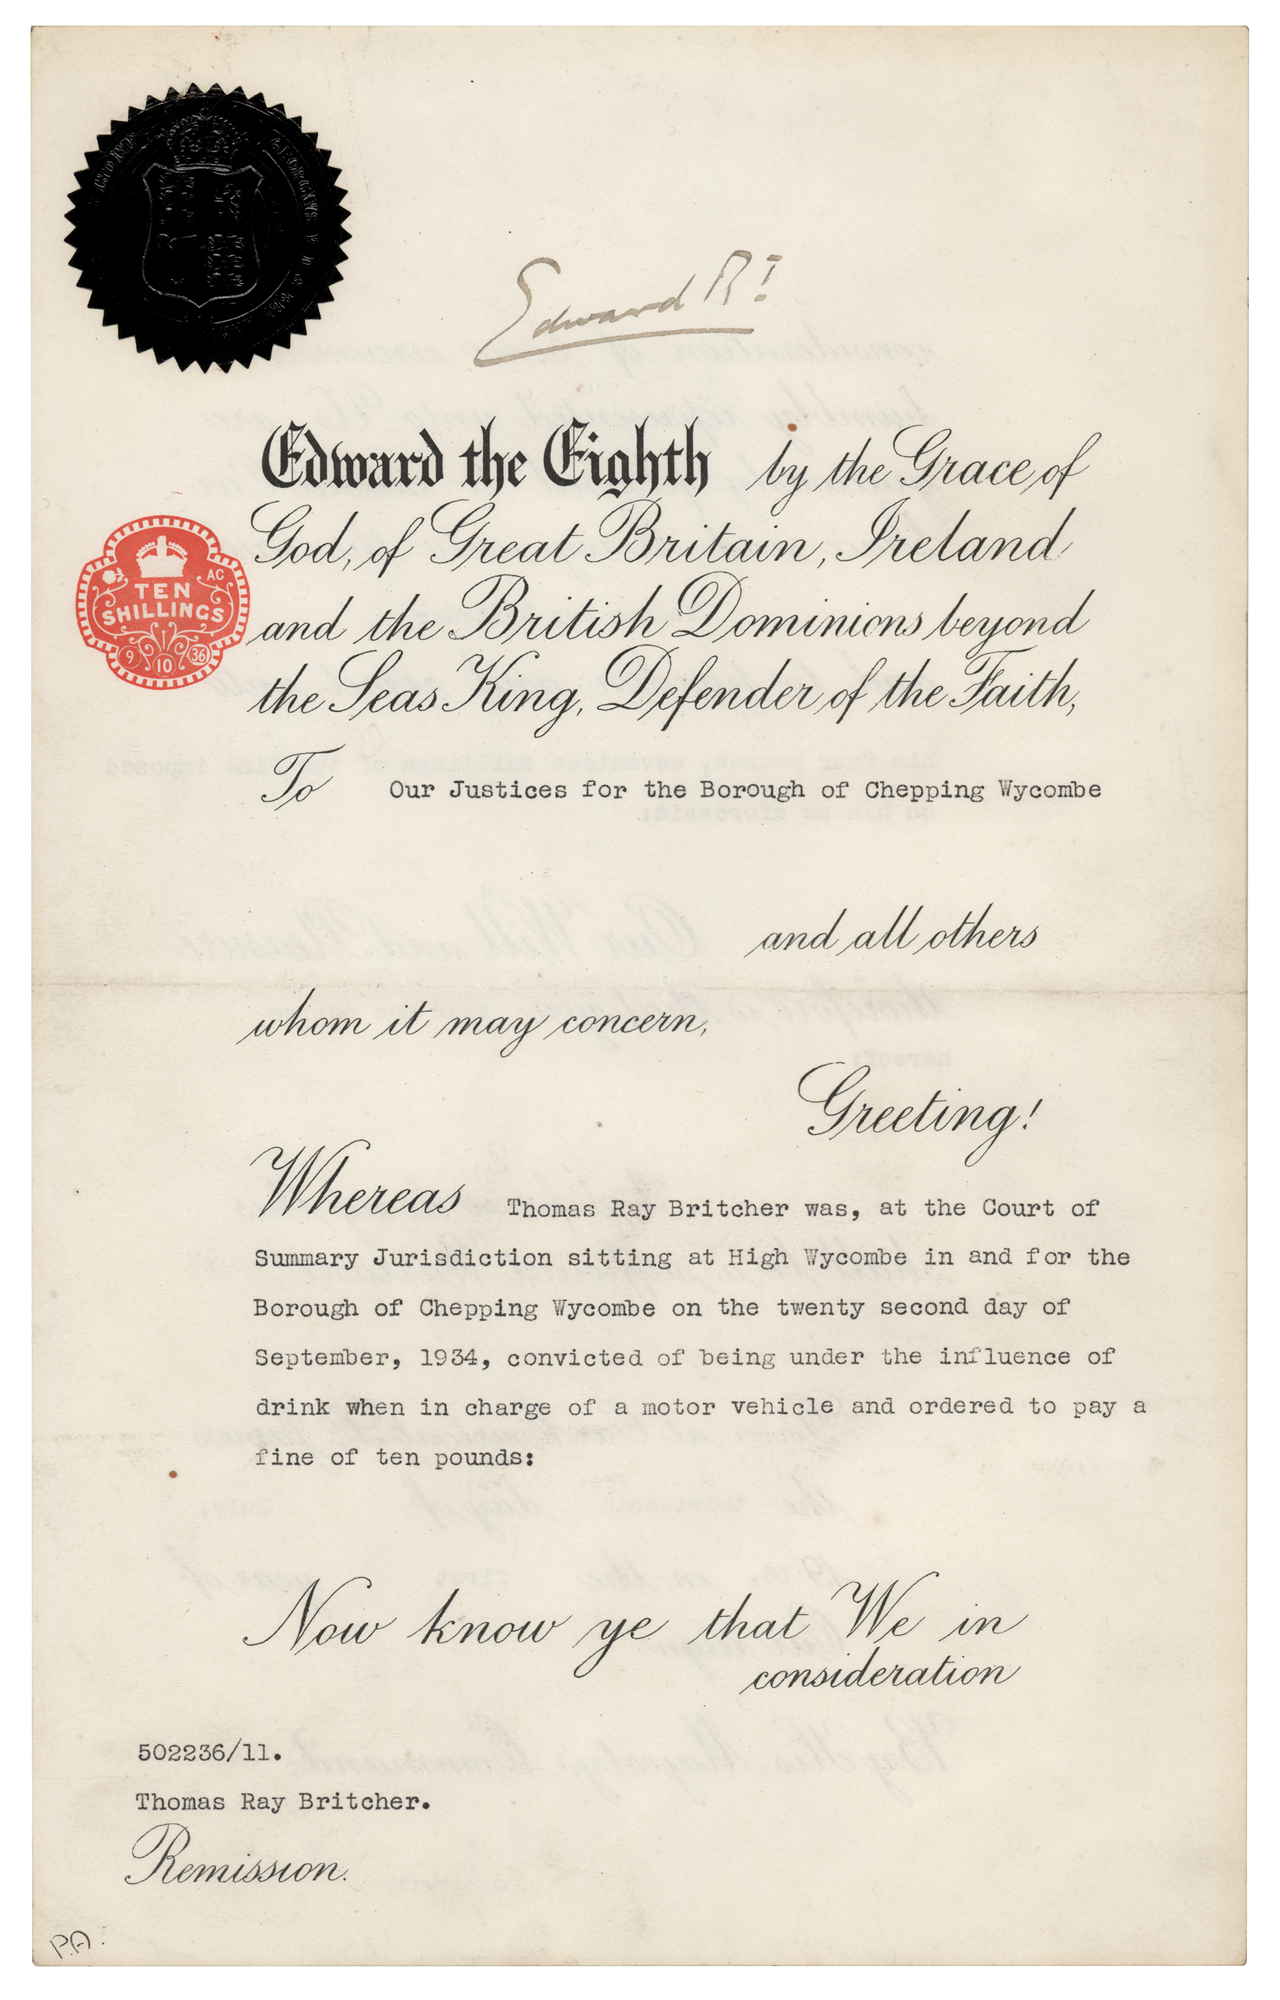 Edward R I
Edward the Eighth by the Grace of
God, of Great Britain, Ireland
and the British Dominions beyond
the Seas King, Defender of the Faith,
AC
TEN
SHILLINGS
9 10 36
To Our Justices for the Borough of Chepping Wycombe
and all others
whom it may concern,
Greeting!
Whereas Thomas Ray Britcher was, at the Court of
Summary Jurisdiction sitting at High Wycombe in and for the
Borough of Chepping Wycombe on the twenty second day of
September, 1934, convicted of being under the influence of
drink when in charge of a motor vehicle and ordered to pay a
fine of ten pounds:
Now know ye that We in
consideration
502236/11.
Thomas Ray Britcher.
Remission.
P.A.